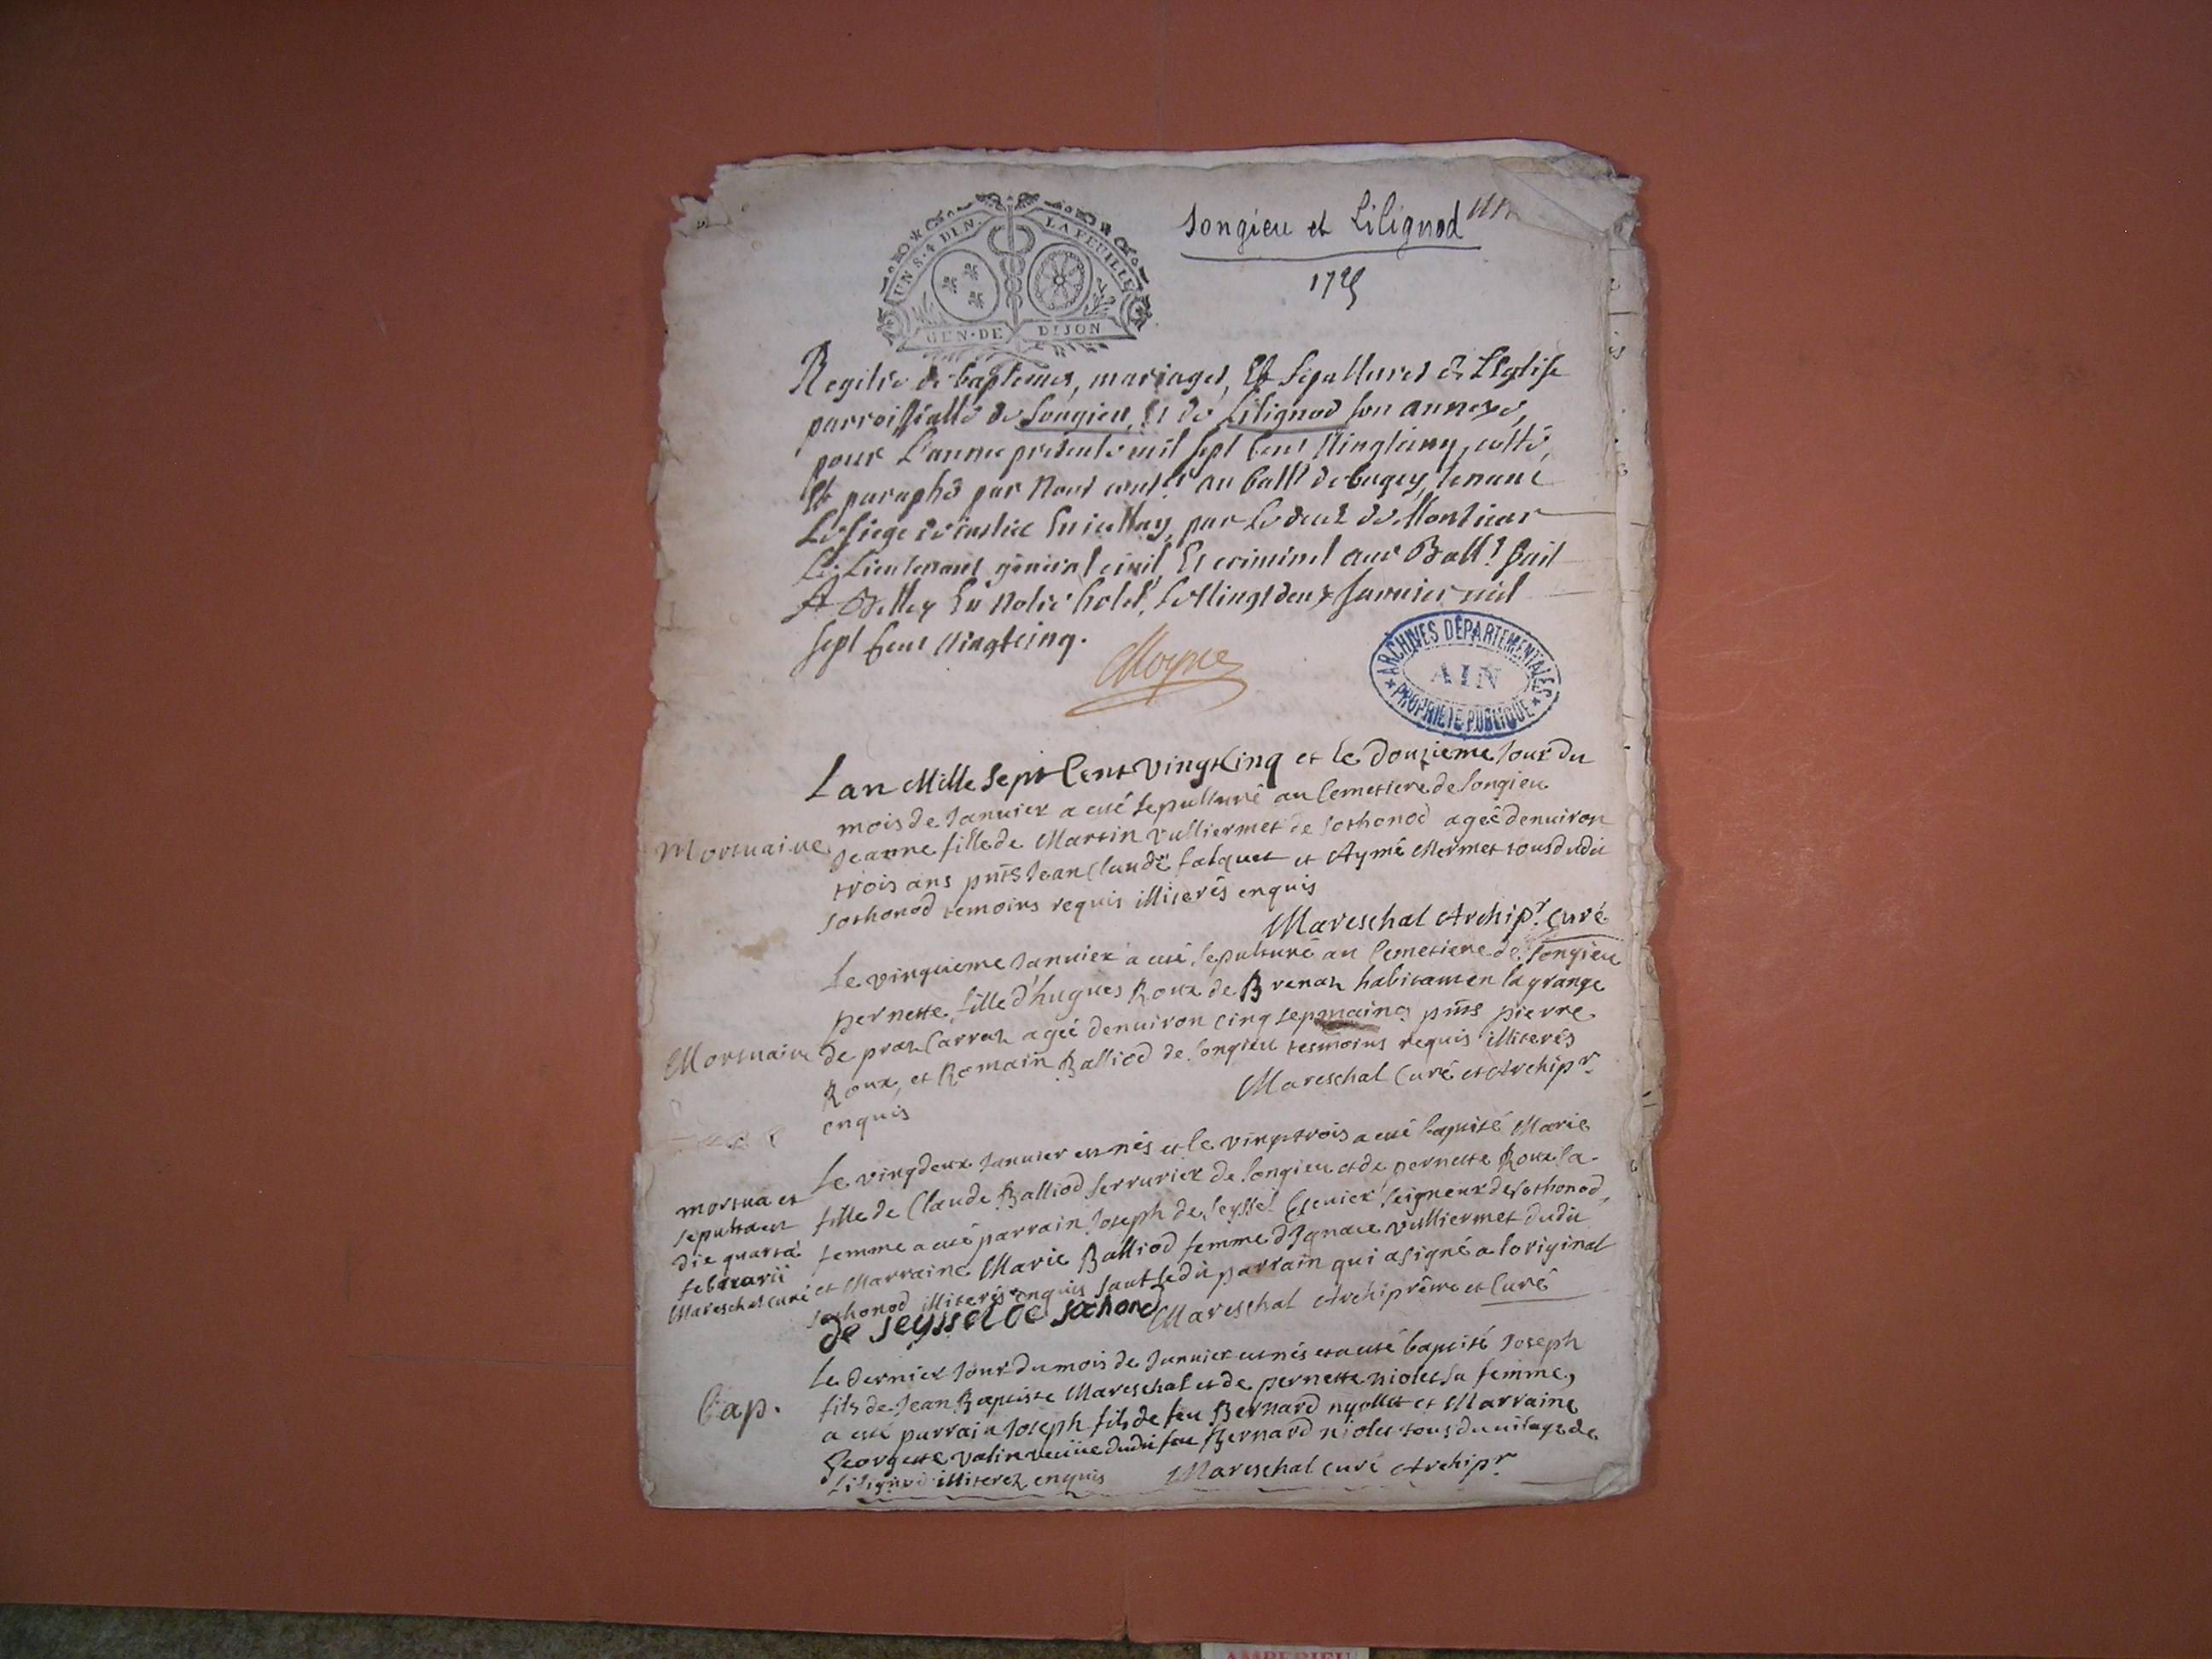 Songieu et Lilignod
1725
UN S. 4 DEN. LA FEUILLE
GEN. DE DIJON
Registre de baptemes, mariages, Et sepultures de L'Eglise
parroissialle de Songieu, Et de Lilignod son annexe,
pour L'annee presente mil sept Cent Vingtcinq, cotté,
Et paraphé par Nous au Ball de bugey, tenant
Le siege de par Le de Monsieur
Le Lieutenant général civil Et criminel aud Ball.e fait
A Belley En Notre hotel, Le Vingtdeux Janvier mil
sept Cent Vingtcinq.
Moyne
ARCHIVES DÉPARTEMENTALES
AIN
PROPRIÉTÉ PUBLIQUE
Lan Mille Sept Cent vingtcinq et le Douzieme Jour du
mois de Janvier a eté sepulturé au Cemetiere de Songieu
Mortuaire
Jeanne fille de Martin Vulliermet de Sothonod agée denuiron
trois ans pnts Jean Claude falquet et Aymé Mermet tous dudit
Sothonod temoins requis illiterés enquis
Mareschal Archip.r Curé
Le vingtieme Janvier a eté sepulturé au Cemetiere de Songieu
pernette fille d'hugues Roux de Brenaz habitant en la grange
Mortuaire
de praz Carraz agée denuiron cinq sepmaines pnts pierre
Roux, et Romain Balliod de Songieu tesmoins requis illiterés
enquis
Mareschal Curé et Archip.r
Le vingdeux Janvier est nés et le vingtrois a eté baptisé Marie
mortua et
sepulta est
die quarta
februarii
Mareschal curé
fille de Claude Balliod serrurier de Songieu et de pernette Roux sa
femme a eté parrain Joseph de Seyssel Escuier seigneur de Sothonod,
et Marraine Marie Balliod femme d'Ignace Vulliermet dudit
Sothonod illiterés enquis sauf ledit parrain qui a signé a loriginal
de Seyssel de Sothonod
Mareschal Archiprêtre et Curé
Le dernier Jour du mois de Janvier est nés et a eté baptisé Joseph
Bap.
fils de Jean Baptiste Mareschal et de pernette niolet sa femme,
a eté parrain Joseph fils de feu Bernard nyollet et Marraine
Georgette Valin veuve dudit feu Bernard niolet tous du vilage de
Lilignod illiterez enquis
Mareschal curé Archip.r